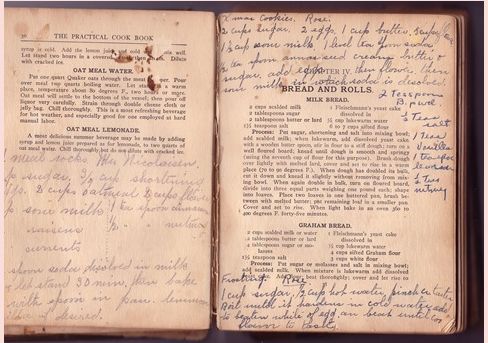 30 THE PRACTICAL COOK BOOK
syrup is cold. Add the lemon juice and cold well.
Let stand two hours in a covered Dilute
with cracked ice.
OAT MEAL WATER.
Put one quart Quaker oats through the meat chopper. Pour
over meal top quarts boiling water. Let stand in a warm
place, temperature about 80 degrees F., two hours or more.
Oat meal will settle to the bottom of the vessel; then pour off
liquor very carefully. Strain through double cheese cloth or
jelly bag. Chill thoroughly. This is a most refreshing beverage
for hot weather, and especially good for one employed at hard
manual labor.
OAT MEAL LEMONADE.
A most delicious summer beverage may be made by adding
syrup and lemon juice prepared as for lemonade, to two quarts of
oat meal water. Chill thoroughly but do not dilute with cracked ice.
meal rocks Mrs
sugar, ½ cup shortening
2 cups oatmeal 2 cups flour
sour milk 1 tea spoon cinnamon
raisins ½ " nutmeg
currents
spoon soda disolved in milk
let stand 30 min, then bake
with spoon in pan.
if desired.
Xmas Cookies. Rose.
2 cups sugar, 2 eggs, 1 cup butter, 3 cups flour
1½ cup sour milk, 1 level tea spoon soda
2 tea spoon cream butter &
sugar, add eggs then flour, then
sour milk in which soda is disolved
2 Teaspoons
B. pwd
CHAPTER IV
BREAD AND ROLLS.
½ Teas
salt
MILK BREAD.
2 cups scalded milk
2 tablespoons sugar
2 tablespoons butter or lard
1½ teaspoons salt
1 Fleischmann's yeast cake
dissolved in
½ cup lukewarm water
6 to 7 cups sifted flour
1 Teas
Vanilla
1 Teaspoon
½ Teas
nutmeg
Process: Put sugar, shortening and salt into mixing bowl;
add scalded milk; when lukewarm, add dissolved yeast cake
with a wooden butter spoon, stir in flour to a stiff dough; turn on a
well floured board; knead until dough is smooth and springy
(using the seventh cup of flour for this purpose). Brush dough
over lightly with melted lard, cover and set to rise in a warm
place (70 to 90 degrees F.). When dough has doubled in bulk,
cut it down and knead it slightly without removing from mix-
ing bowl. When again double in bulk, turn on floured board;
divide into three equal parts weighing one pound each; shape
into loaves. Place two loaves in one buttered pan, brush be-
tween with melted butter; put remaining loaf in a smaller pan.
Cover and set to rise. When light bake in an oven 360 to
400 degrees F. forty-five minutes.
GRAHAM BREAD.
2 cups scalded milk or water
2 tablespoons butter or lard
2 tablespoons sugar or mo-
lasses
1½ teaspoons salt
1 Fleischmann's yeast cake
dissolved in
½ cup lukewarm water
4 cups sifted Graham flour
3 cups white flour
Process: Put sugar or molasses and salt in mixing bowl;
add scalded milk. When mixture is lukewarm add dissolved
best thoroughly; cover and let rise to
Frosting. Rose
1 cup sugar, ½ cup hot water, pinch cr tartar
Boil until it hardens in cold water, add
to beaten white of egg, and beat until cool
flavor to taste.